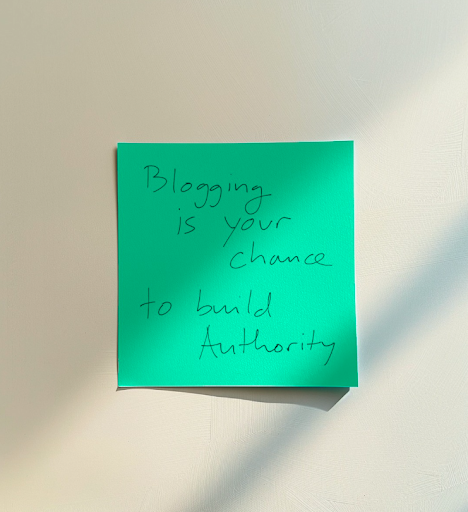 Blogging
is your
chance
to build
Authority